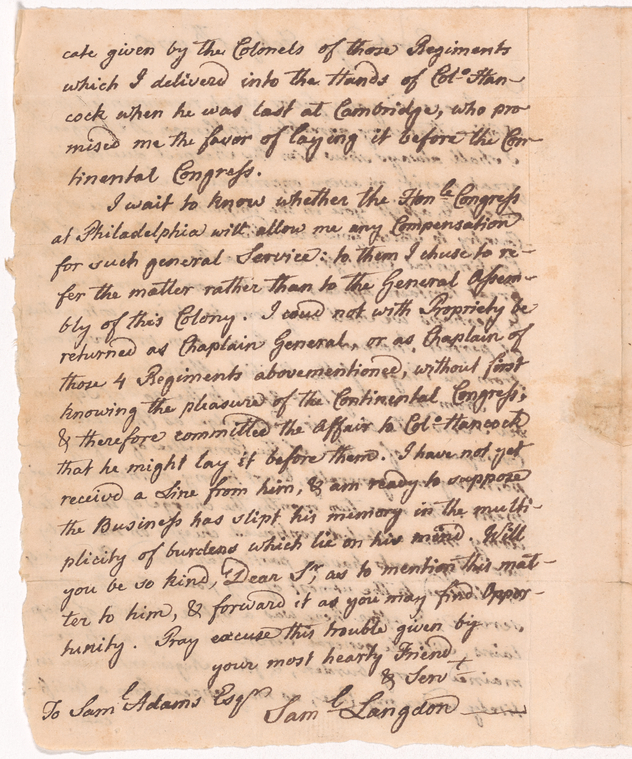 cate given by the Colonels of those Regiments
which I deliverd into the Hands of Col.º Han-
cock when he was last at Cambridge, who pro-
mised me the favor of laying it before the Con-
tinental Congress.
I wait to know whether the Hon.ble Congress
at Philadelphia will allow me any Compensation
for such general Service: to them I chuse to re-
fer the matter rather than to the General Assem-
bly of this Colony. I coud not with Propriety be
returned as Chaplain General, or as Chaplain of
those 4 Regiments abovementioned, without first
knowing the pleasure of the Continental Congress;
& therefore committed the Affair to Col.º Hancock
that he might lay it before them. I have not yet
receivd a Line from him, & am ready to suppose
the Business has slipt his memory in the multi-
plicity of burdens which lie on his mind. Will
you be so kind, Dear S.r, as to mention this mat-
ter to him, & forward it as you may find Oppor-
tunity. Pray excuse this trouble given by
your most hearty Friend
& Serv.t
To Sam.l Adams Esq.r Sam.l Langdon